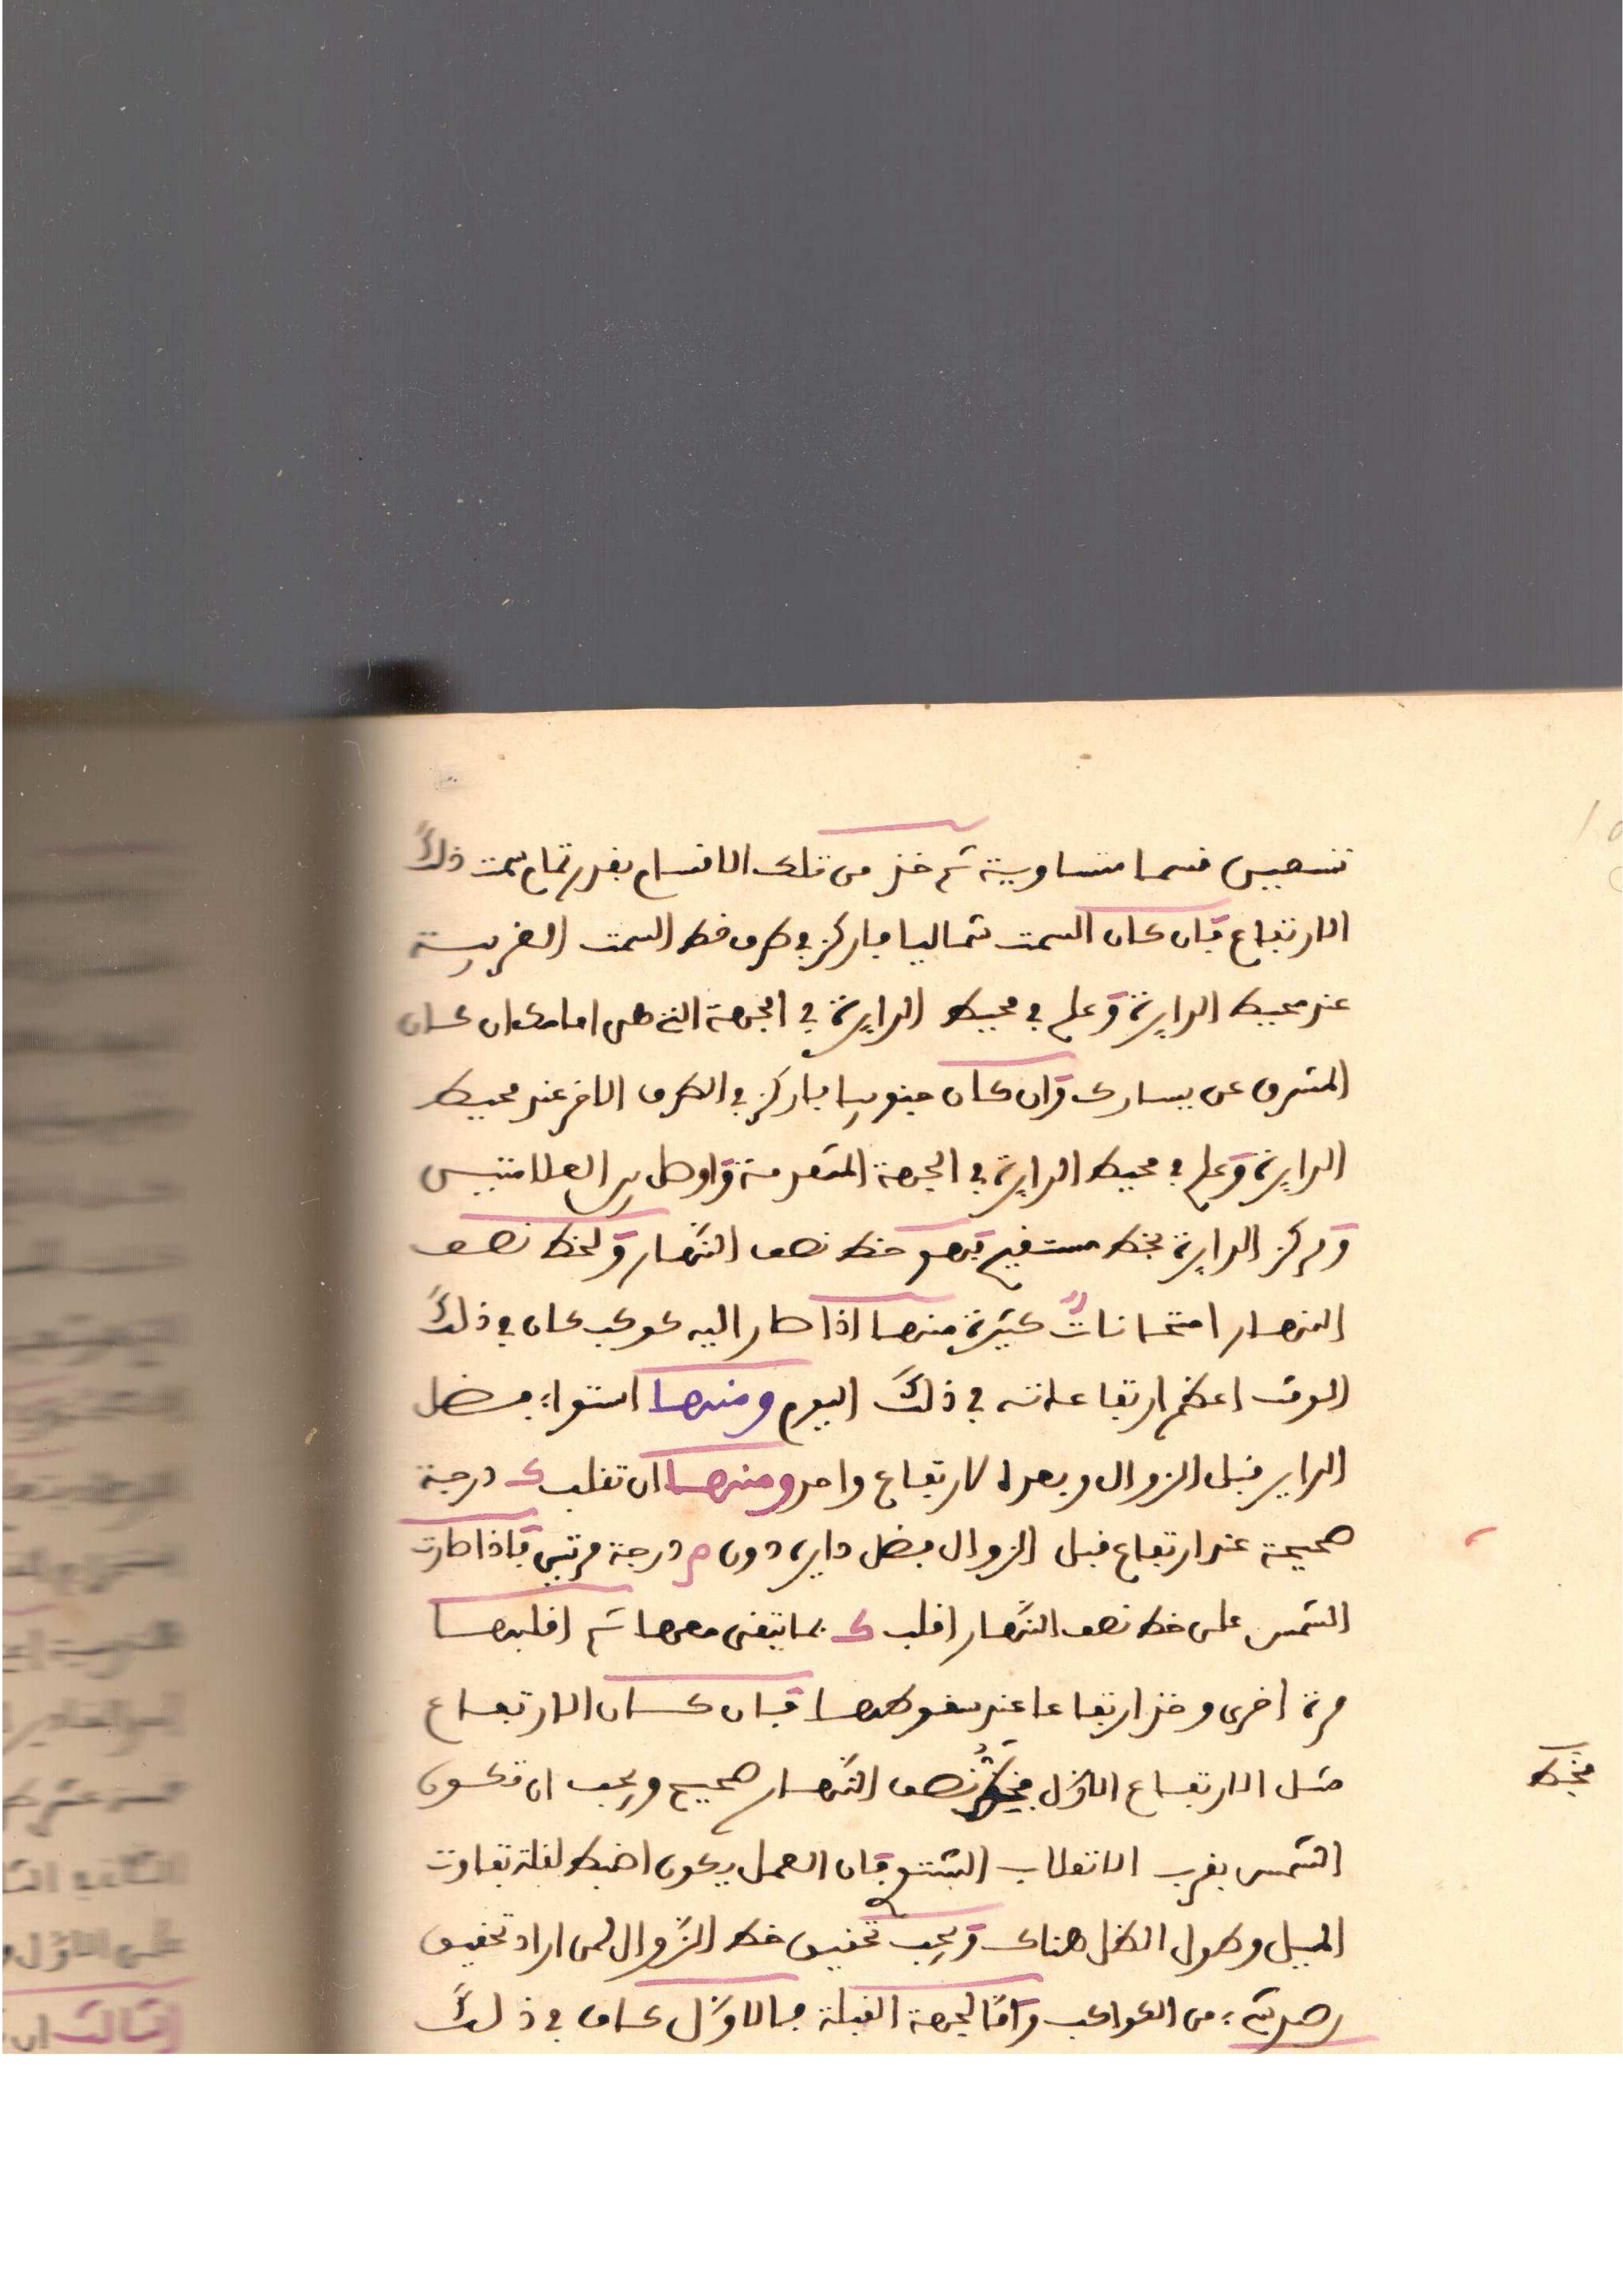 تسعين قسما متساوية ثم خذ من تلك الاقسام بقدر تمام سمت ذلك
الارتفاع فان كان السمت شماليا فاركز في طرف خط السمت الغربية
عند محيط الدايرة وعلم في محيط الدايرة في الجهة التي هي امامك ان كان
المشرق عن يسارك وان كان جنوبيا فاركز في الطرف الاخر عند محيط
الدايرة وعلم في محيط الدايرة في الجهة المتقدمة واوصل بين العلامتين
ومركز الدايرة بخط مستقيم فهو خط نصف النهار ولخط نصف
النهار امتحانات كثيرة منها اذا صار اليه كوكب كان في ذلك
الوقت اعظم ارتفاعاته في ذلك اليوم ومنها استواء فضل
الداير قبل الزوال وبعده لارتفاع واحد ومنها ان تقلب ك درجة
صحيحة عند ارتفاع قبل الزوال بفضل داير دون م درجة مرتين فاذا صارت
الشمس على خط نصف النهار اقلب ك بما يبقى معها ثم اقلبها
مرة اخرى وخذ ارتفاعا عند سقوطها فان كان الارتفاع
مثل الارتفاع الاول فخط نصف النهار صحيح ويجب ان تكون
الشمس بقرب الانقلاب الشتوي فان العمل يكون اضبط لقلة تفاوت
الميل وطول الظل هناك ويجب تحقيق خط الزوال لمن اراد تحقيق
رصد شيء من الكواكب واما لجهة القبلة فالاول كاف في ذلك
فخط